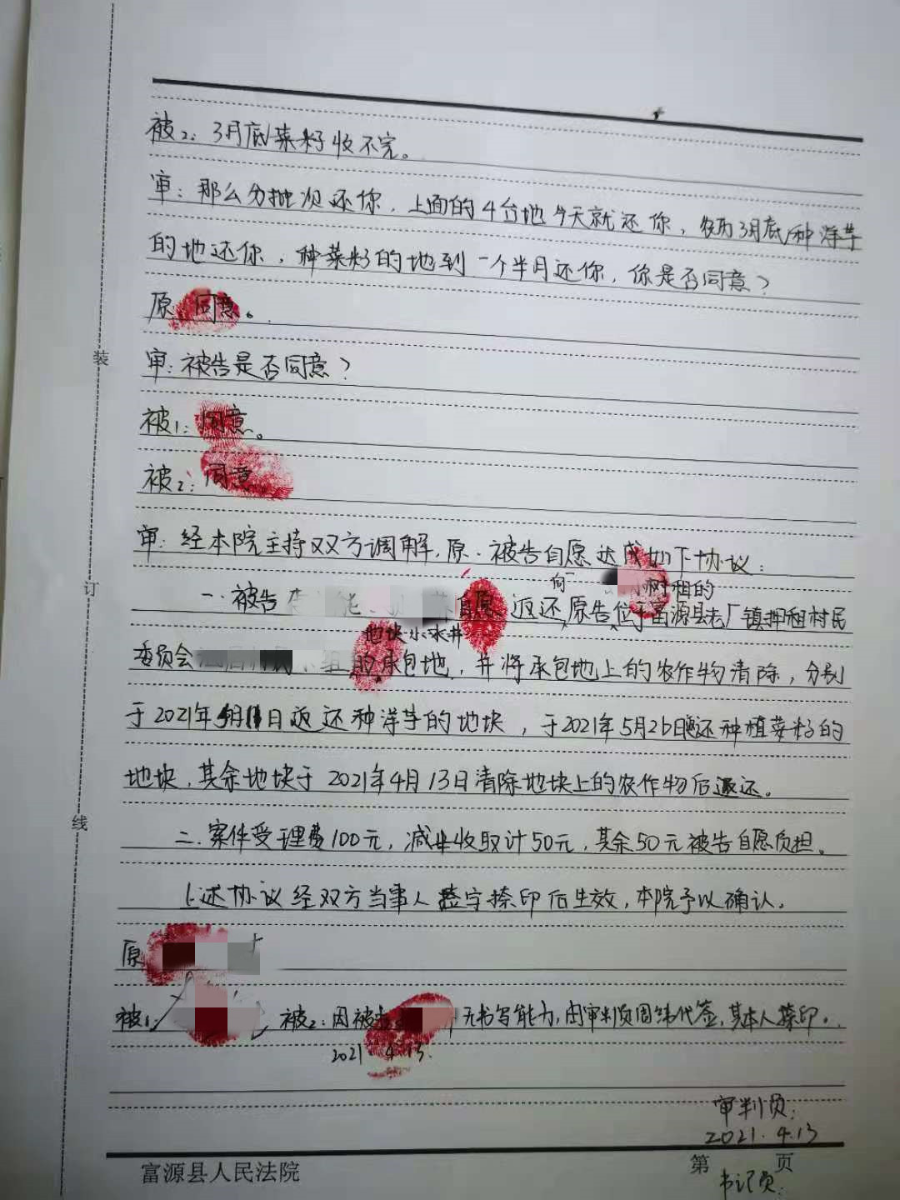 被2：3月底菜籽收不完。
审：那么分批次还你，上面的4台地今天就还你，农历3月底种洋芋
的地还你，种菜籽的地到一个半月还你，你是否同意？
原：同意。
审：被告是否同意？
被1：同意。
被2：同意
审：经本院主持双方调解，原、被告自愿达成如下协议：
向
树相的
一、被告 自愿 返还原告位于富源县老厂镇拥租村民
地块小水井
委员会 的承包地，并将承包地上的农作物清除，分别
于2021年5月11日返还种洋芋的地块，于2021年5月26日返还种植菜籽的
地块，其余地块于2021年4月13日清除地块上的农作物后返还。
二、案件受理费100元，减半收取计50元，其余50元被告自愿负担。
上述协议经双方当事人签字捺印后生效，本院予以确认。
原
被1： 被2：因被告 无书写能力，由审判员周纬代签，其本人捺印。
2021.4.13.
审判员：
2021.4.13
富源县人民法院
第 页
书记员：
装
订
线